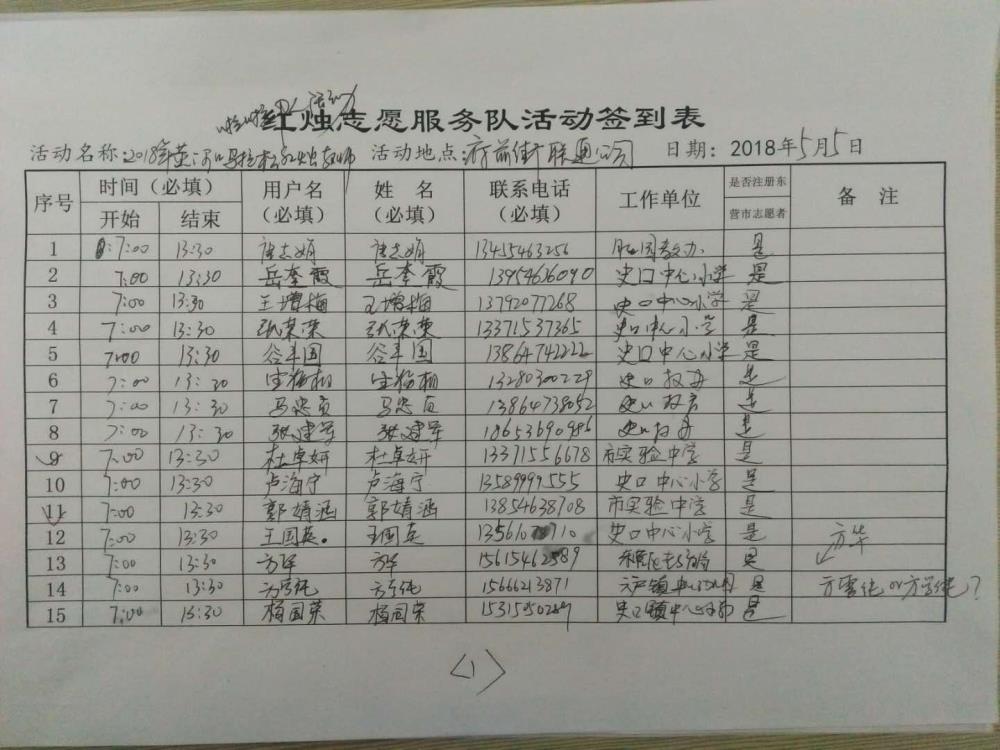 啦啦队活动
红烛志愿服务队活动签到表
活动名称:2018年黄河口马拉松红烛教师 活动地点:府前街联通公司 日期:2018年5月5日
序号 时间(必填) 用户名(必填) 姓 名(必填) 联系电话(必填) 工作单位 是否注册东营市志愿者 备 注
开始 结束
1 7:00 13:30 13455463256 是
2 7:00 13:30 岳奎霞 岳奎霞 13954636090 史口中心小学 是
3 7:00 13:30 王增梅 王增梅 13792077268 史口中心小学 是
4 7:00 13:30 张荣荣 张荣荣 13371537365 史口中心小学 是
5 7:00 13:30 13864742222 史口中心小学 是
6 7:00 13:30 13280300229 史口教办 是
7 7:00 13:30 马忠贞 马忠贞 13864738052 史口教办 是
8 7:00 13:30 张建军 张建军 18653690986 史口教办 是
9 7:00 13:30 杜卓妍 杜卓妍 13371556678 市实验中学 是
10 7:00 13:30 卢海宁 卢海宁 13589999555 史口中心小学 是
11 7:00 13:30 郭婧涵 郭婧涵 13854638708 市实验中学 是
12 7:00 13:30 王国英 王国英 史口中心小学 是 方华
13 7:00 13:30 方华 方华 是
14 7:00 13:30 15666213871 是
15 7:00 13:30 杨国荣 杨国荣 史口镇中心 是
<1>